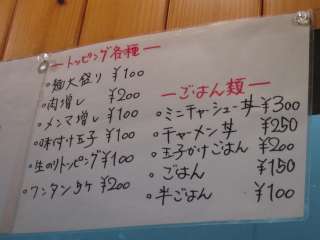 ートッピング各種ー
。麺大盛り ¥100
。肉増し ¥200
。メンマ増し ¥100
。味付け玉子 ¥100
。生のりトッピング ¥100
。ワンタン5ケ ¥200
ーごはん類ー
。ミニチャーシュー丼 ¥300
。チャーメン丼 ¥250
。玉子かけごはん ¥200
。ごはん ¥150
。半ごはん ¥100